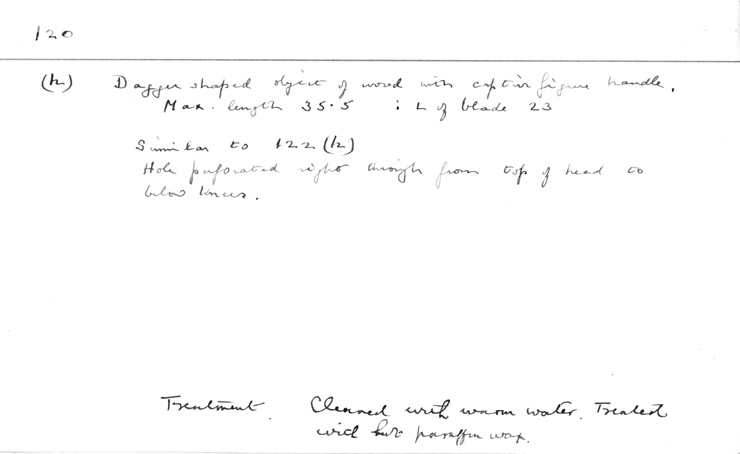 120
(h) Dagger shaped object of wood with captive figure handle.
Max. length 35.5 : L of blade 23
Similar to 122 (h)
Hole perforated right through from top of head to
below knees.
Treatment. Cleaned with warm water. Treated
with hot paraffin wax.